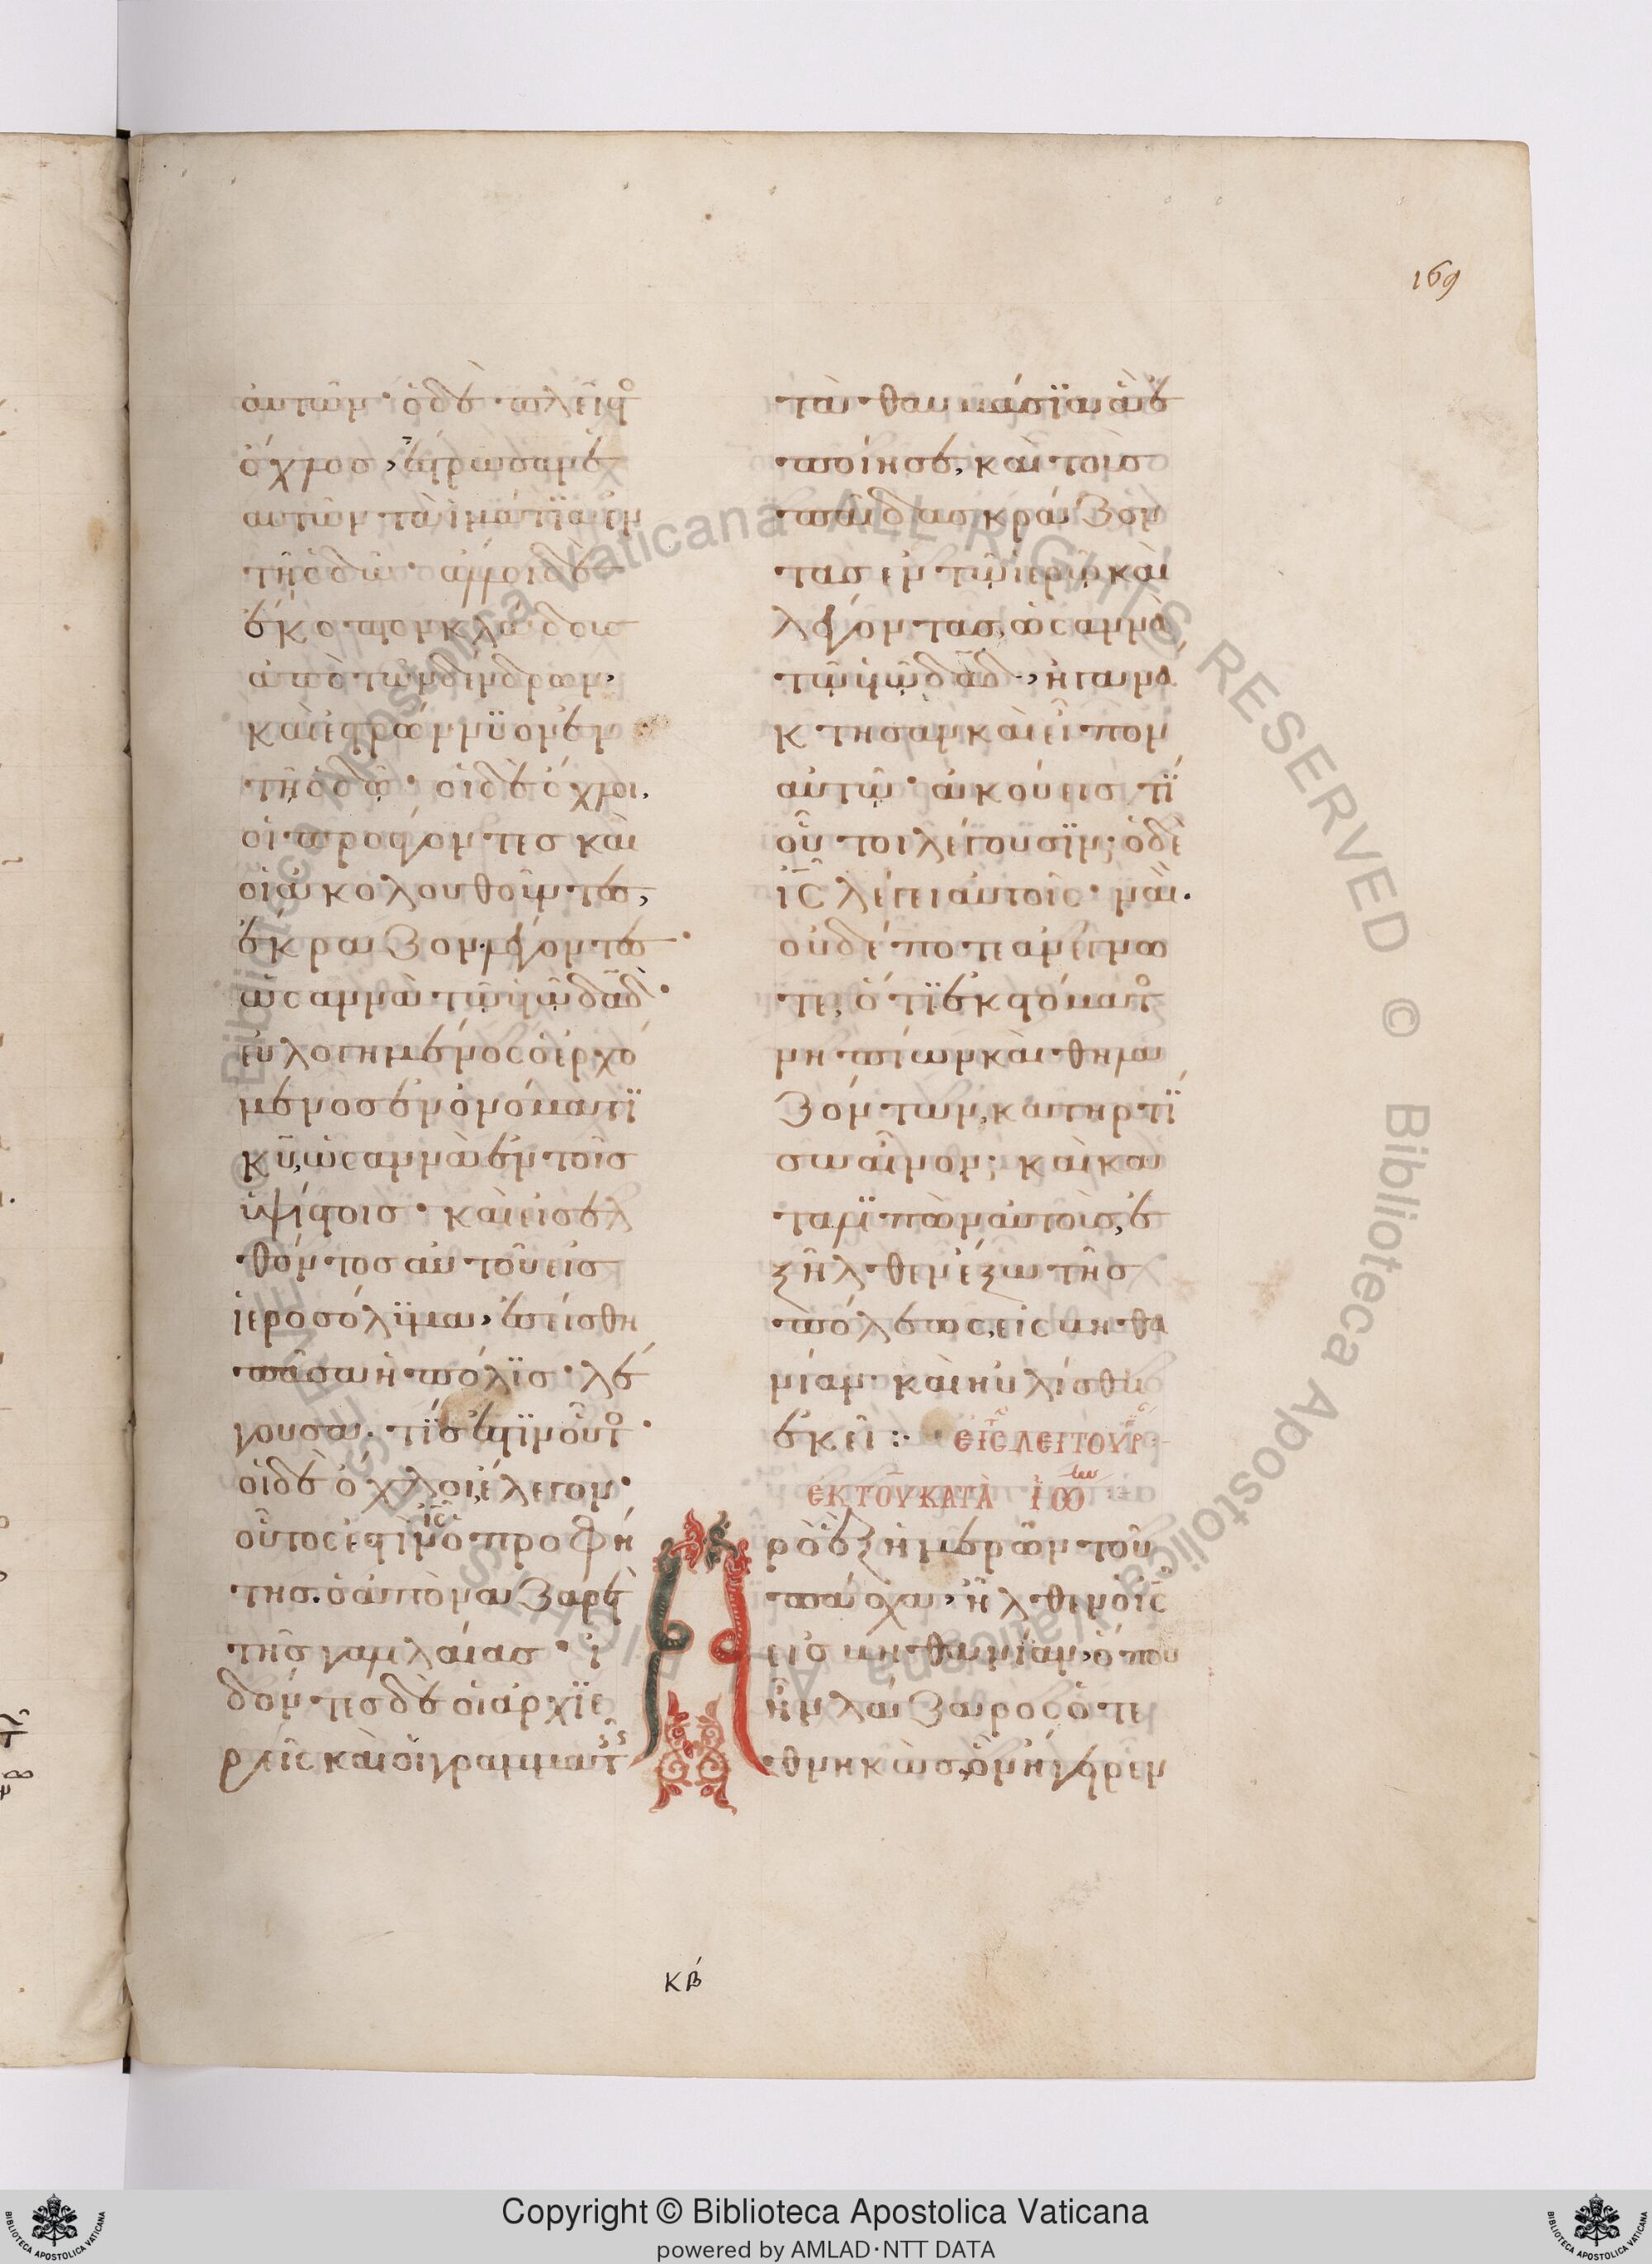 169
αυτῶν· ὁ δὲ πλεῖστος
ὄχλος, ἔστρωσαν ἐ
αυτῶν τὰ ἱμάτϊα ἐν
τῇ ὁδῶ· ἄλλοι δὲ
ἔκοπτον κλάδους
ἀπὸ τῶν δένδρων,
καὶ ἐστρώννϋον ἐν
τῇ ὁδῷ· οἱ δὲ ὄχλοι,
οἱ προάγοντες καὶ
οἱ ἀκολουθοῦντες,
ἔκραζον λέγοντες·
ὡσαννὰ τῷ υἱῷ δαδ·
εὐλογημένος ὁ ἐρχό
μενος ἐν ὀνόματϊ
κυ, ὡσαννὰ ἐν τοῖς
ὑψίστοις· καὶ εἰσελ
θόντος αὐτοῦ εἰς
ἱεροσόλϋμα, ἐσείσθη
πᾶσα ἡ πόλϊς λέ
γουσα· τίς ἐστϊν οὗτος·
οἱ δὲ ὄχλοι ἔλεγον·
οὗτος ἐστὶν ις ὁ προφή
της. ὁ ἀπὸ ναζαρὲτ
τῆς γαλιλαίας· ἰ
δόντες δὲ οἱ ἀρχϊε
ρεῖς καὶ οἱ γραμματεῖς
τὰ θαυμάσϊα ἃ ἐ
ποίησε, καὶ τοὺς
παῖδας κράζον
τας ἐν τῷ ἱερῷ καὶ
λέγοντας, ὡσαννὰ
τῷ υἱῷ δαδ, ἠγανα
κτησαν καὶ εἶπον
αὐτῷ· ἀκούεις τί
οὗτοι λέγουσϊν; ὁ δὲ
ις λέγει αὐτοῖς· ναὶ.
οὐδέποτε ἀνέγνω
τε, ὅτϊ ἐκ στόματος
νηπίων καὶ θηλα
ζόντων, κατηρτί
σω αἶνον; καὶ κα
ταλϊπὼν αὐτοὺς, ἐ
ξῆλθεν ἔξω τῆς
πόλεως, εἰς βηθα
νίαν καὶ ηὐλίσθη
ἐκεῖ:· εἰς τ λειτουργ
ἐκ τοῦ κατὰ ἰω
Πρὸ ἓξ ἡμερῶν τοῦ
πάσχα, ἦλθεν ὁ ις
εἰς βηθανίαν, ὅπου
ἦν λάζαρος ὁ τε
θνηκὼς, ὃν ἤγειρεν
κβ
Copyright © Biblioteca Apostolica Vaticana
powered by AMLAD·NTT DATA